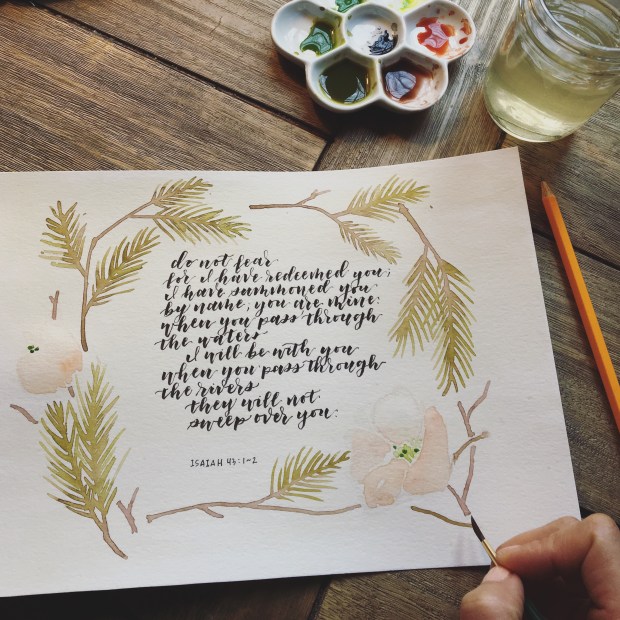 do not fear
for I have redeemed you;
I have summoned you
by name; you are mine.
when you pass through
the waters
I will be with you
when you pass through
the rivers
they will not
sweep over you.
ISAIAH 43:1-2